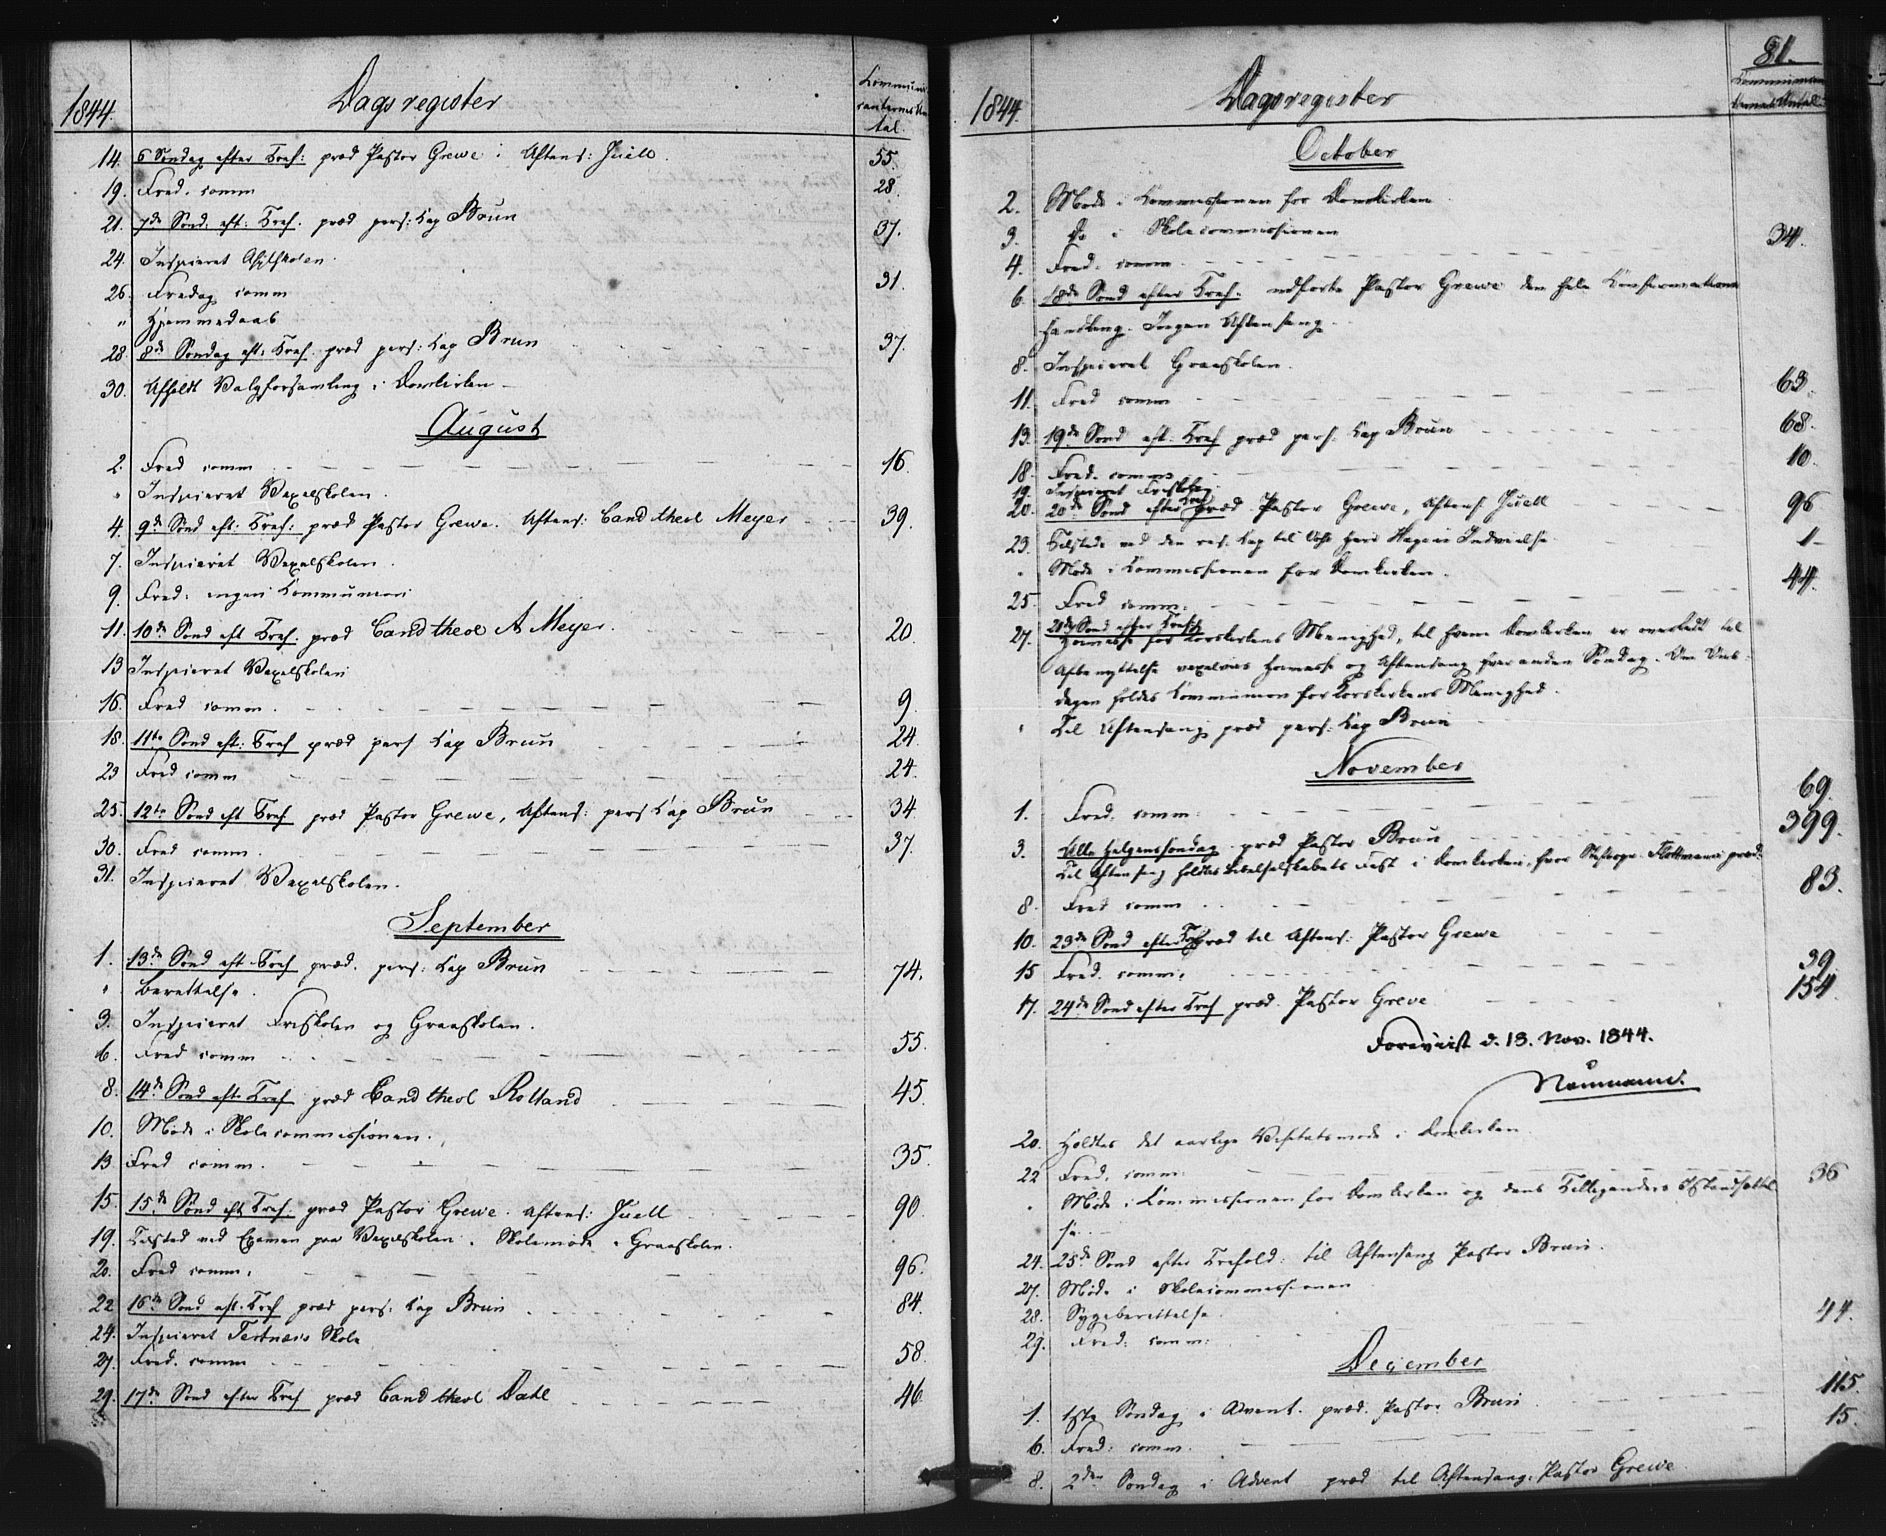 1844.
Dagsregister
Communi-
canternes An-
tal.
14. 6 Søndag efter Tref: præd Pastor Grewe. Aftens: Juell. 55.
19. Fred. comm 28.
21. 7de Sønd. eft. Tref. præd pers: Cap Bruun 37.
24. Inspiceret Asylskolen.
26. Fredag comm 31.
" Hjemmedaab
28. 8de Søndag eft: Tref. præd pers: Cap Bruun 37.
30. Afholdt Valgforsamling i Domkirken
August
2. Fred comm 16.
" Inspiceret Vexelskolen.
4. 9de Sønd eft. Tref: præd Pastor Grewe. Aftens: Cand theol Meyer 39.
7. Inspiceret Vexelskolen.
9. Fred: ingen Communion
11. 10de Sønd eft Tref. præd Cand theol A Meyer. 20.
13 Inspiceret Vexelskolen
16. Fred comm. 9.
18. 11te Sønd eft: Tref præd pers Cap Bruun 24.
23 Fred comm 24.
25. 12te Sønd eft Tref præd Pastor Grewe, Aftens: pers Cap Bruun 34
30. Fred comm. 37.
31. Inspiceret Vexelskolen.
September
1. 13de Sønd eft Tref præd. pers: Cap Bruun 74.
" Berettelse.
3. Inspiceret Friskolen og Graaskolen.
6. Fred comm 55.
8. 14de Sønd eft Tref præd Cand theol Rolland 45.
10. Møde i Skolecommissionen.
13. Fred comm. 35.
15. 15de Sønd eft Tref. præd Pastor Grewe. Aftens: Juell 90.
19. Tilsted ved Examen paa Vexelskolen. Skolemøde i Graaskolen.
20. Fred comm. 96.
22 16de Sønd eft. Tref præd pers: Cap Bruun 84.
24. Inspiceret Tertnæs Skole
27. Fred. comm 58.
29. 17de Sønd efter Tref præd Cand theol Dahl 46.
81.
1844.
Dagsregister
Communican-
ternes Antal
October
2. Møde i Commissionen for Domkirken
3. Do i Skolecommissionen
4. Fred. comm 34.
6. 18de Sønd efter Tref. udførte Pastor Grewe den hele Confirmations
Handling. Ingen Aftensang.
8. Inspiceret Graaskolen.
11. Fred comm 63.
13. 19de Sønd eft. Tref præd pers. Cap Bruun 68.
18. Fred. comm 10.
19. Inspiceret Friskolen
20. 20de Sønd efter Tref præd Pastor Grewe, Aftens. Juell 96
23. Tilstede ved den res. Cap til Hagens Indvielse 1
" Møde i Commissionen for Domkirken.
25. Fred comm. 44.
27. 21de Sønd efter Tref.
Høimesse for Korskirkens Menighed, til hvem Domkirken er overladt til
Afbenyttelse vexelviis Høimesse og Aftensang hver anden Søndag. Om Ons-
dagen holdes Communion for Korskirkens Menighed.
" Til Aftensang præd pers: Cap Bruun
November
1. Fred. comm. 69.
3. Alle Helgenssøndag præd Pastor Bruun 399.
Til Aftensang holdtes Bibelselskabets Fest i Domkirken, hvor Stiftspr. Flottmann præd.
8. Fred comm 83.
10. 23de Sønd efter Tref præd til Aftens: Pastor Grewe
15 Fred. comm. 39.
17. 24de Sønd efter Tref præd. Pastor Greve 154.
Foreviist d. 18. Nov. 1844.
Neumann.
20. Holdtes det aarlige Visitatsmøde i Domkirken.
22 Fred. comm: 36
" Møde i Commissionen for Domkirken og dens Tilliggendes Istandsættel
se.
24. 25de Sønd efter Trefold: til Aftensang Pastor Bruun.
27. Møde i Skolecommissionen
28. Sygeberettelse.
29. Fred: comm: 44.
December
1. 1ste Søndag i Advent. præd. Pastor Bruun 115.
6. Fred: comm. 15.
8. 2den Søndag i Advent præd til Aftensang. Pastor Grewe.